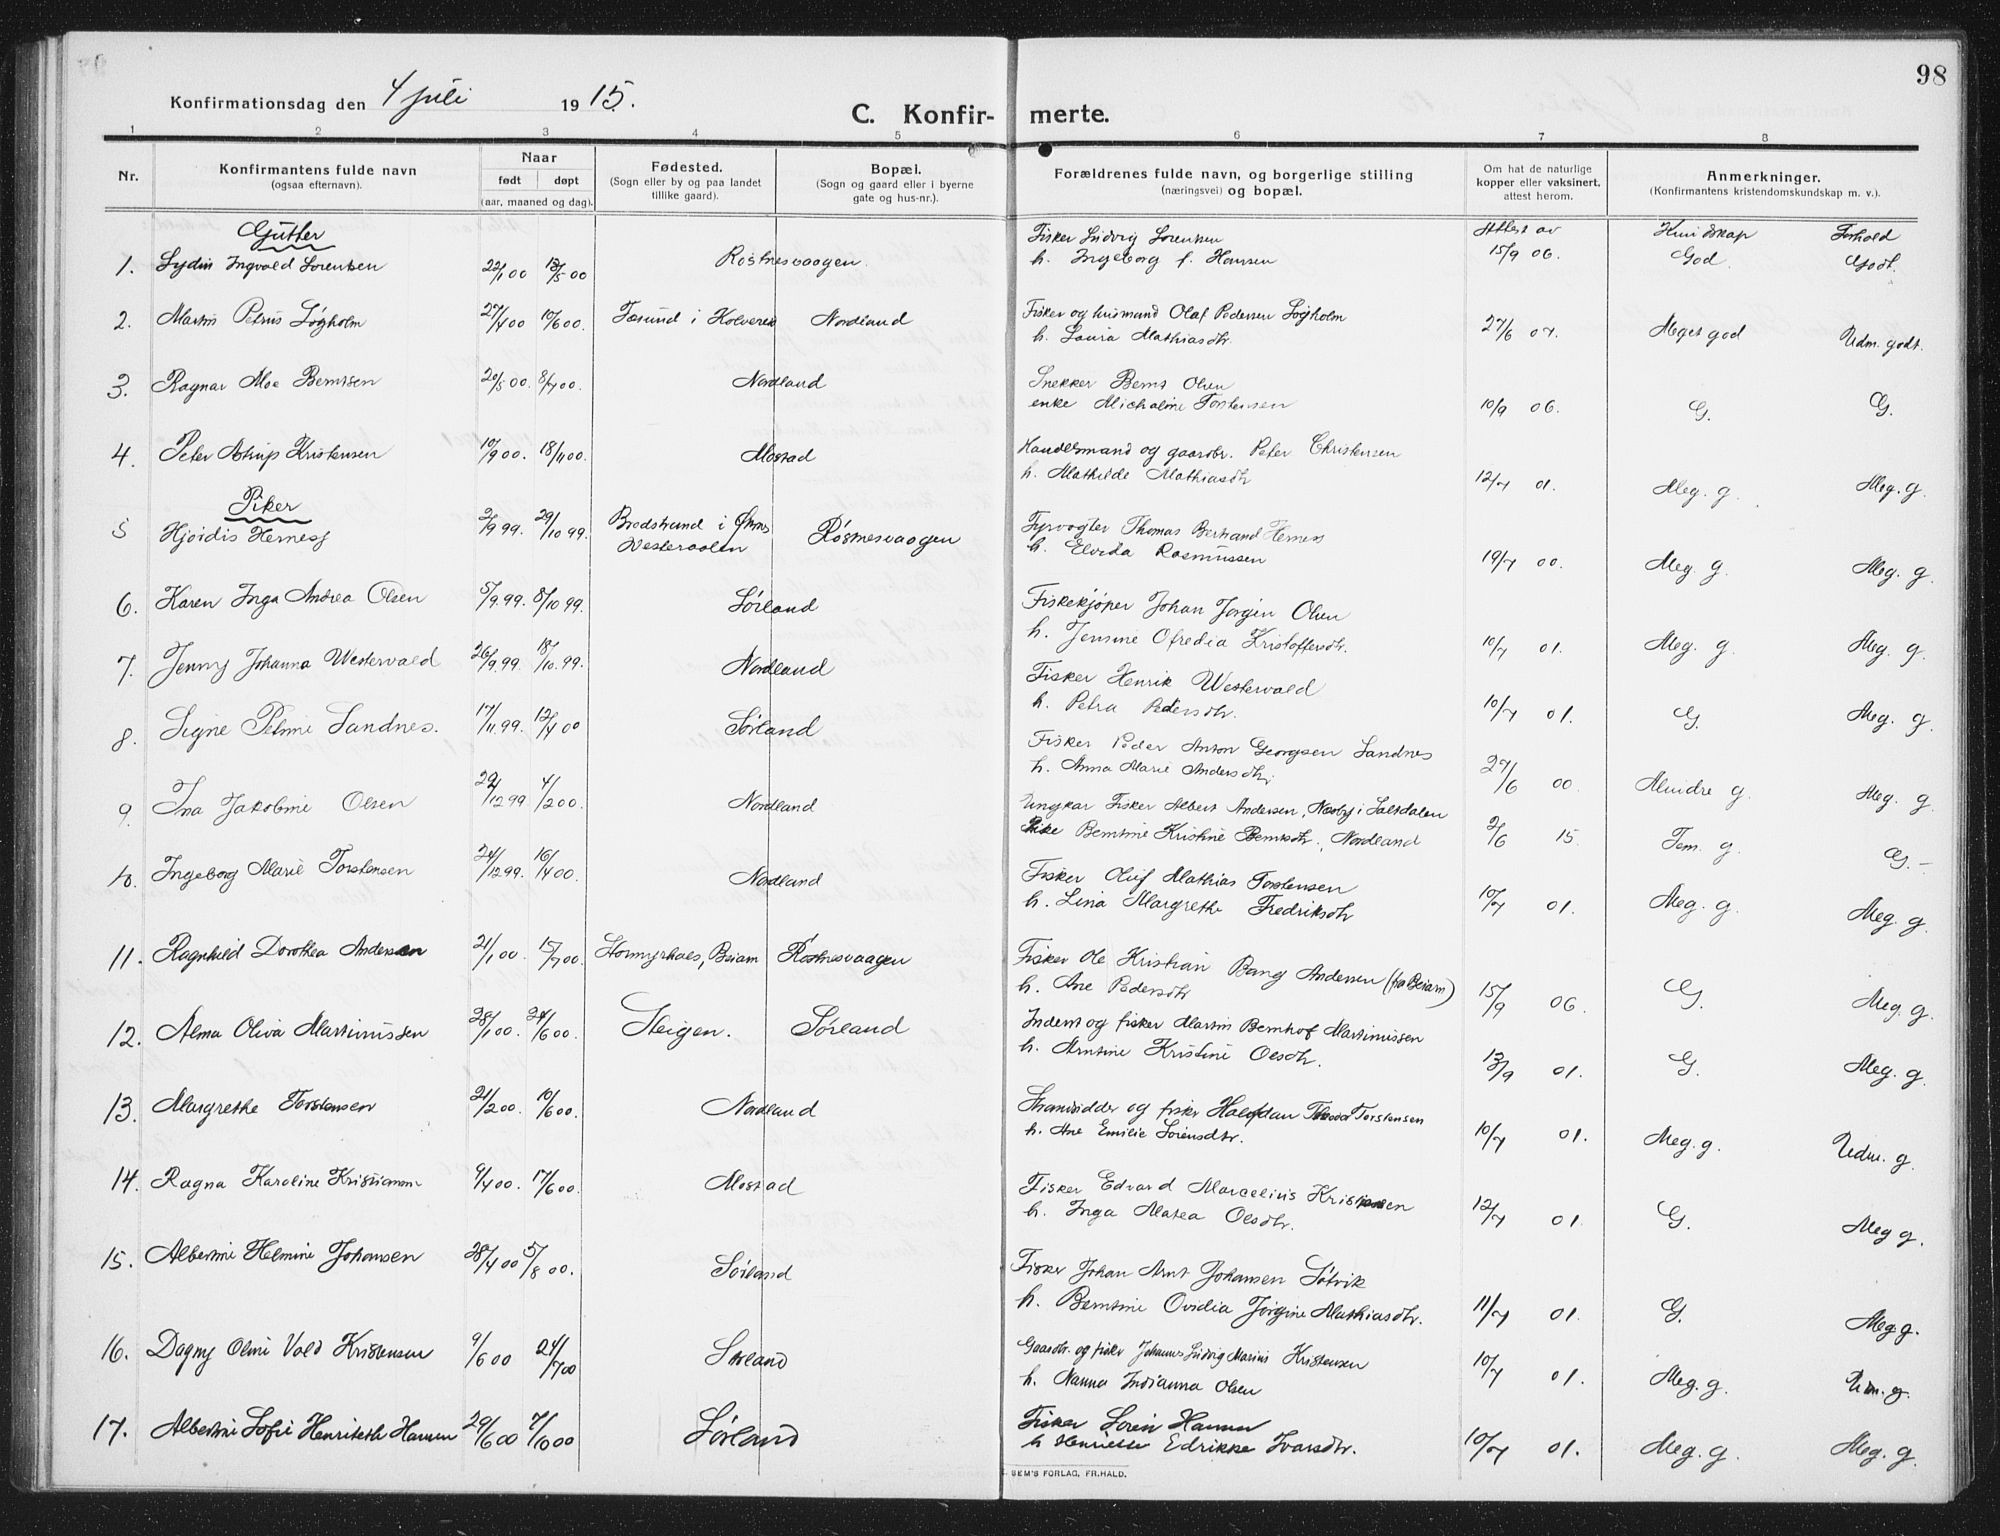 98
Konfirmationsdag den 4 juli 1915.
C. Konfirmerte.
1 2 3 4 5 6 7 8
Nr.
Konfirmantens fulde navn (ogsaa efternavn).
Naar født døpt (aar, maaned og dag).
Fødested. (Sogn eller by og paa landet tillike gaard).
Bopæl. (Sogn og gaard eller i byerne gate og hus-nr.).
Forældrenes fulde navn, og borgerlige stilling (næringsvei) og bopæl.
Om hat de naturlige kopper eller vaksinert, attest herom.
Anmerkninger. (Konfirmantens kristendomskundskap m. v.).
Gutter
Attest av Kundskap Forhold
1. Lydin Ingvald Lorentsen 22/1 00 13/5 00 Røstnesvaagen Fisker Ludvig Lorentsen
h. Ingeborg f. Hansen 15/9 06. God Godt.
2. Martin Petrus Løgholm 27/4 00 10/6 00. Tæsund i Kolvereid Nordland Fisker og husmand Olaf Pedersen Løgholm
h. Laura Mathiasdtr. 27/6 07. Meget god Udm. godt.
3. Ragnar Moe Berntsen 20/5 00. 8/7 00. Nordland Snekker Bernt Olsen
enke Micholine Torstensen 10/9 06. G. G.
4. Peter Astrup Kristensen 10/9 00. 18/11 00. Mostad Handelsmand og gaardbr. Peter Christensen
h. Mathilde Mathiasdtr 12/7 01. Meg. g. Meg. g.
Piker
5 Hjørdis Herness 2/9 99. 29/10 99. Bredstrand i Øksnes Vesteraalen Røstnesvaagen Fyrvogter Thomas Bertrand Herness
h. Elvida Rasmussen 19/7 00. Meg. g. Meg. g.
6. Karen Inga Andrea Olsen 5/9 99. 8/10 99. Sørland Fiskekjøper Johan Jørgin Olsen
h. Jensine Ofredia Kristoffersdtr. 10/7 01. Meg. g. Meg. g.
7. Jenny Johanna Westervald 26/9 99. 18/10 99. Nordland Fisker Henrik Westervald
h. Petra Pedersdtr. 10/7 01. G. Meg. g.
8. Signe Petrine Sandnes. 17/11 99. 12/4 00 Sørland Fisker Peder Anton Georgsen Sandnes
h. Anna Marie Andersdtr. 27/6 00 Mindre g. Meg. g.
9. Ina Jakobine Olsen 29/12 99 4/2 00. Nordland Ungkar Fisker Albert Andersen, Næsby i Saltdalen
Pike Berntine Kristine Berntsdtr., Nordland 2/6 15. Tem. g. G.-
10. Ingeborg Marie Torstensen 24/12 99. 16/4 00. Nordland Fisker Oluf Mathias Torstensen
h. Lina Margrethe Fredriksdtr 10/7 01. Meg. g. Meg. g.
11. Ragnhild Dorothea Andersen 21/1 00. 15/7 00. Stormyrhals, Beiarn Røstnesvaagen Fisker Ole Kristian Bang Andersen (fra Beiarn)
h. Ane Pedersdtr 15/9 06. G. Meg. g.
12. Alma Oliva Martinussen 28/1 00. 24/6 00. Steigen. Sørland Inderst og fisker Martin Bernhof Martinussen
h. Arntine Kristine Olsdtr. 13/9 01. G. Meg. g.
13. Margrethe Torstensen 21/2 00. 10/6 00. Nordland Strandsidder og fisker Halfdan Torstensen
h. Ane Emilie Sørensdtr. 10/7 01. Meg. g. Udm. g.
14. Ragna Karoline Kristiansen 9/4 00. 17/6 00. Mostad Fisker Edvard Marcelius Kristiansen
h. Inga Matea Olsdtr. 12/7 01. G. Meg g.
15. Albertine Helmine Johansen 28/4 00 5/8 00. Sørland Fisker Johan Arnt Johansen Søtvik
h. Berntine Ovidia Jørgine Mathiasdtr. 11/7 01. G. Meg. g.
16. Dagny Oline Vold Kristensen 9/6 00 24/7 00 Sørland Gaardbr. og fisker Johannes Ludvig Marius Kristensen
h. Nanna Indianna Olsen 10/7 01. Meg. g. Udm. g.
17. Albertine Sofie Henriette Hansen 29/6 00 7/10 00 Sørland Fisker Soren Hansen
h Henriette Edrikke Ivarsdtr. 10/7 01. Meg. g. Meg. g.
SEM'S FORLAG, FR. HALD.